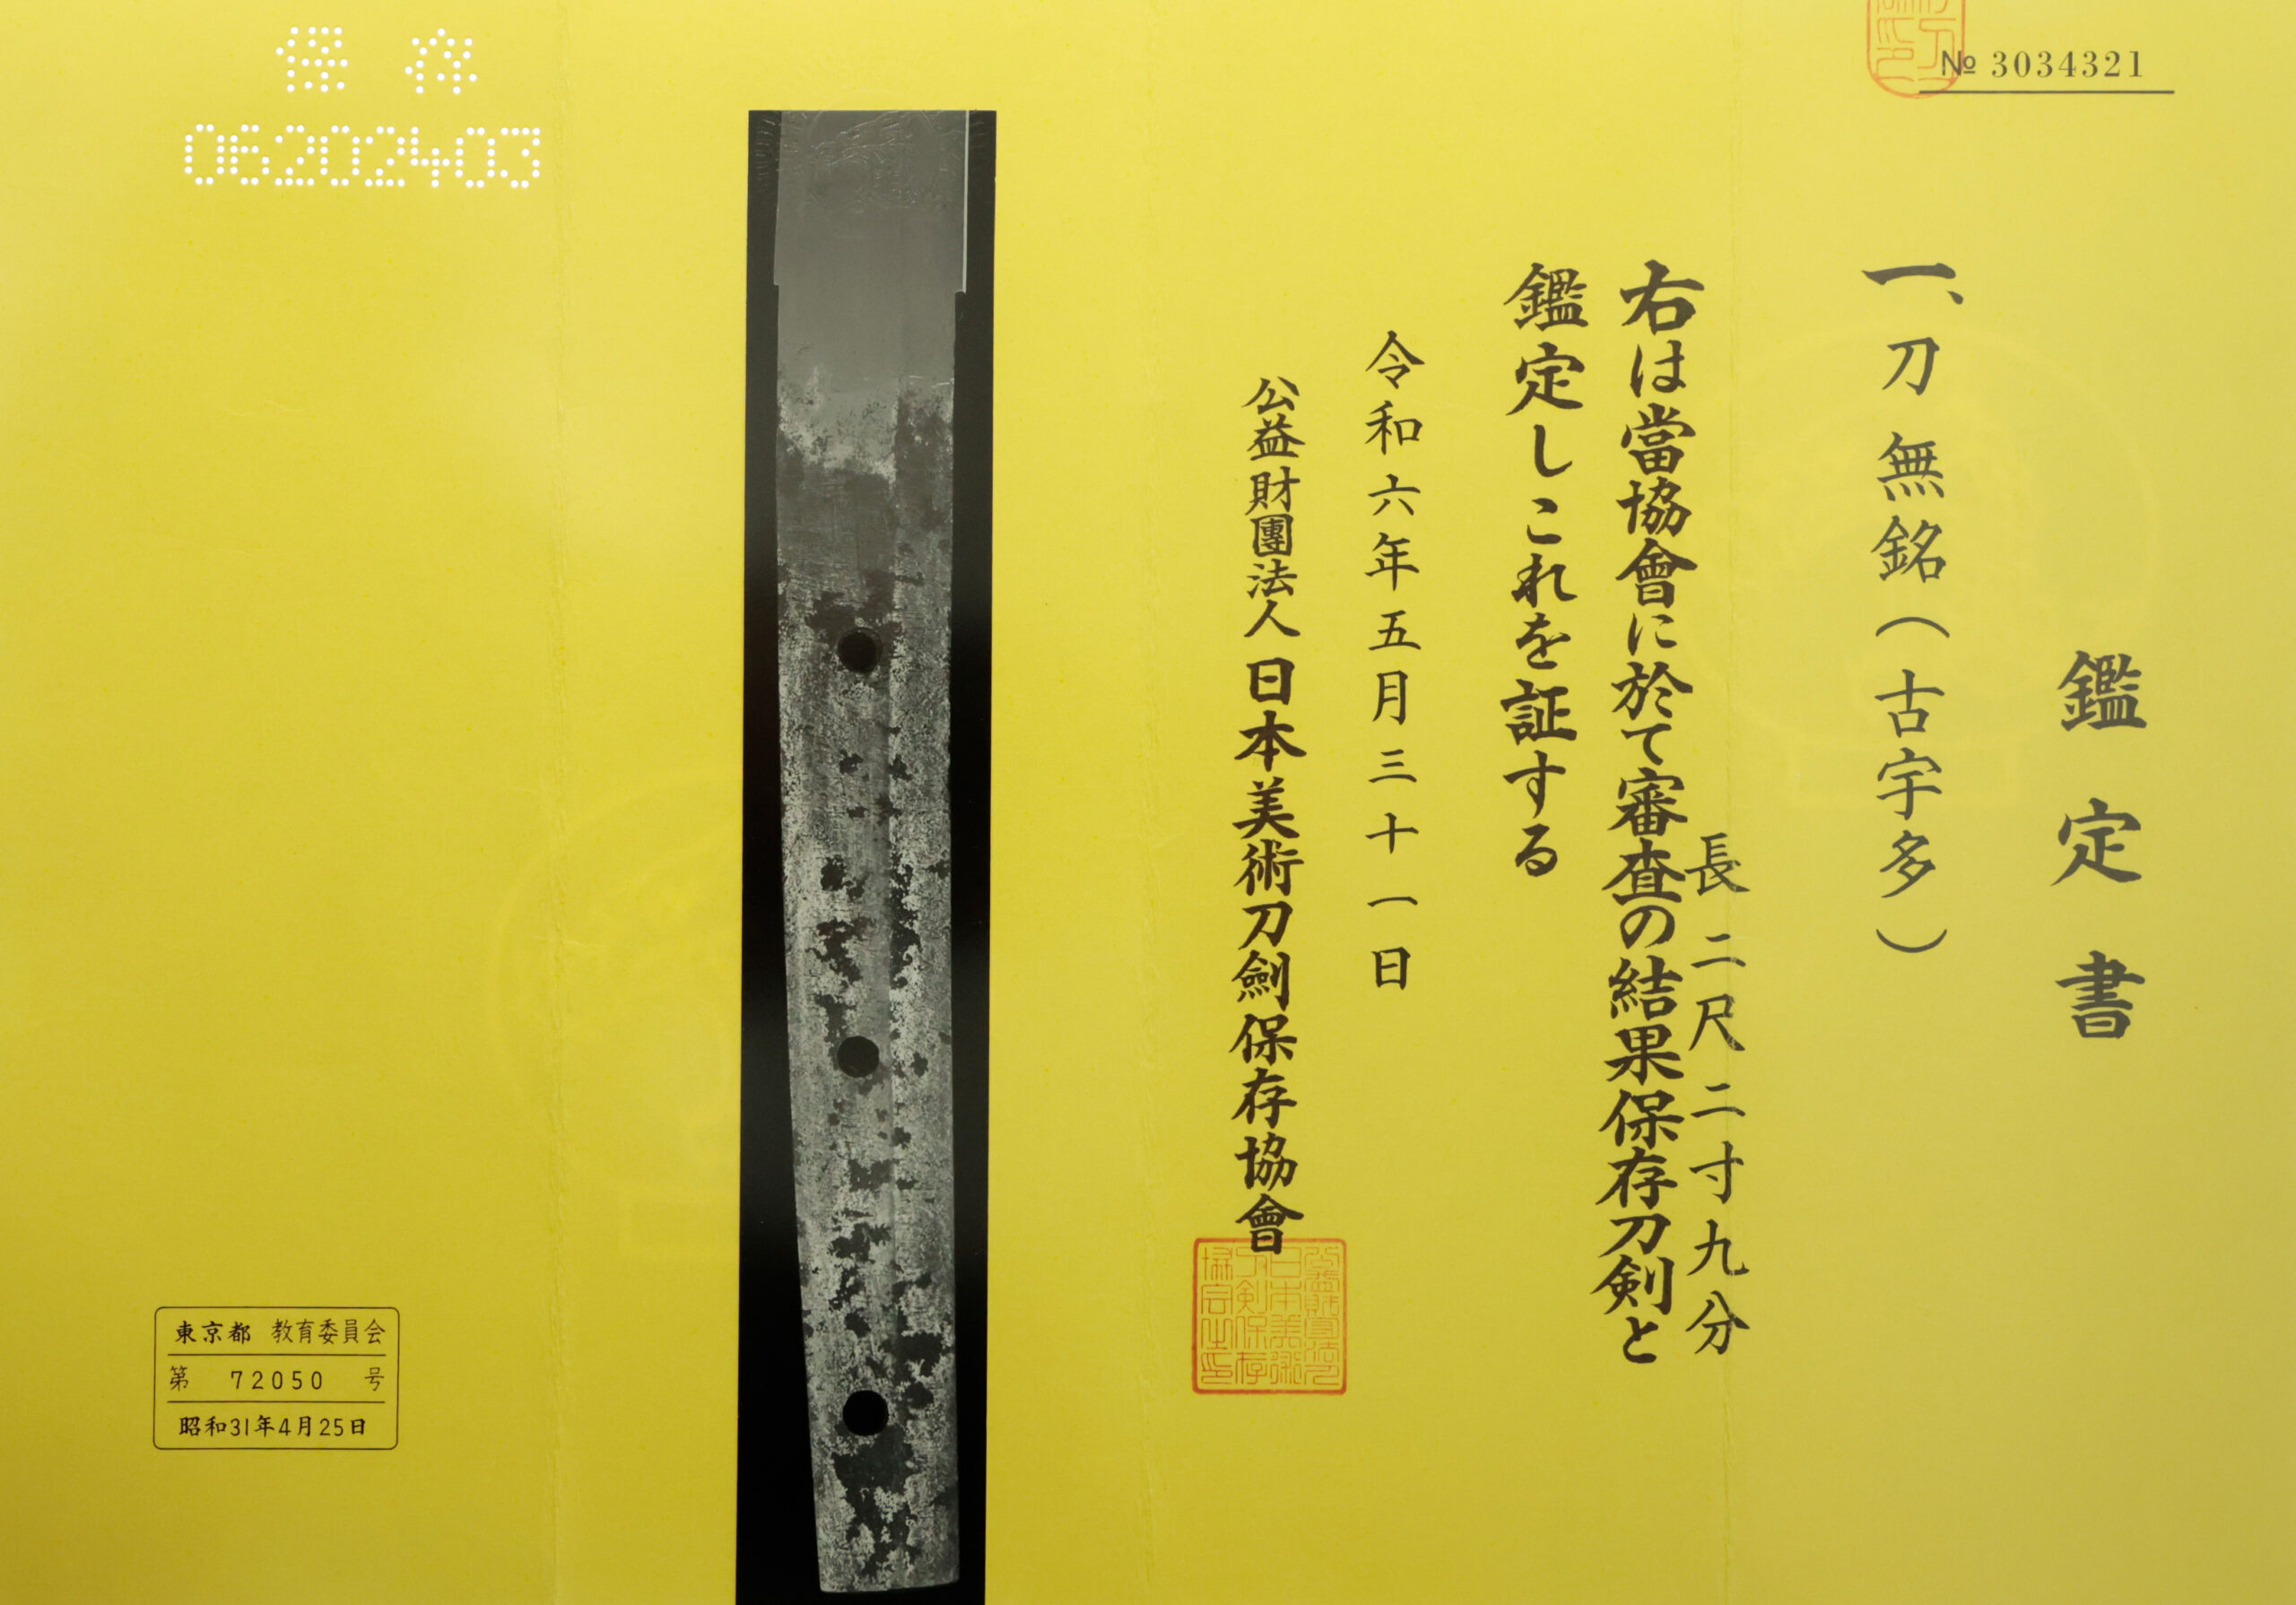 № 3034321
鑑定書
一、刀 無銘(古宇多)
長 二尺二寸九分
右は當協會に於て審査の結果保存刀剣と
鑑定しこれを証する
令和六年五月三十一日
公益財團法人 日本美術刀劍保存協會
保存
06202403
東京都 教育委員会
第 72050 号
昭和31年4月25日